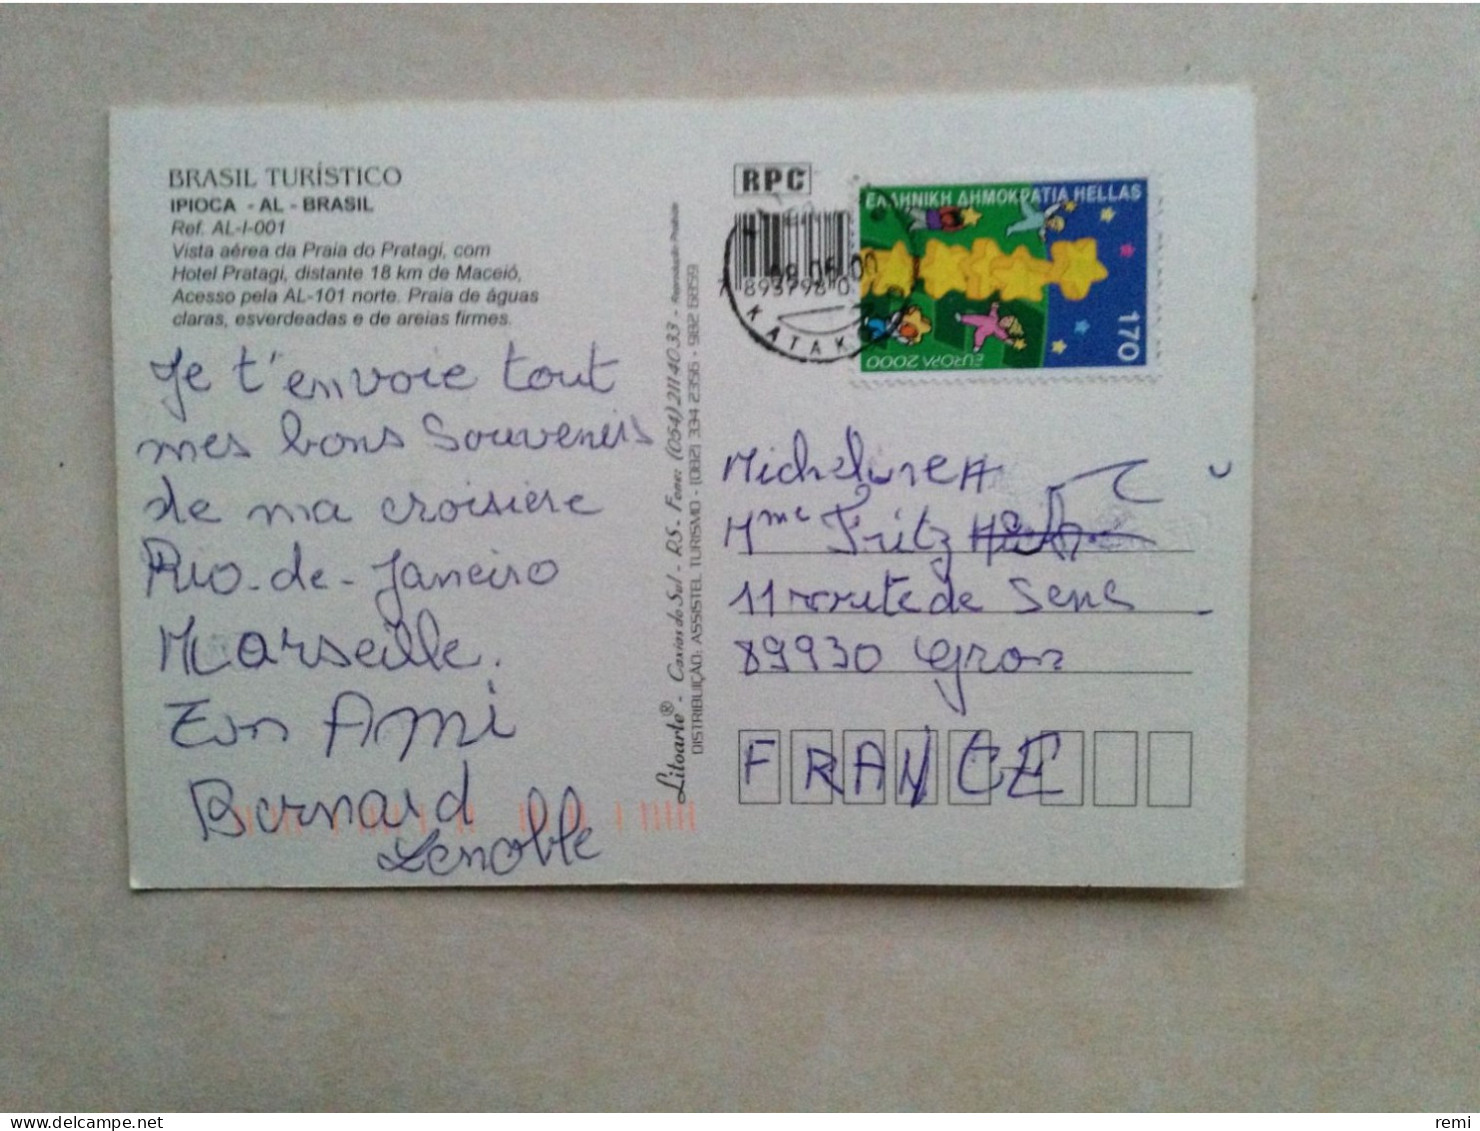 BRASIL TURÍSTICO
IPIOCA - AL - BRASIL
Ref. AL-I-001
Vista aérea da Praia do Pratagi, com
Hotel Pratagi, distante 18 km de Maceió,
Acesso pela AL-101 norte. Praia de águas
claras, esverdeadas e de areias firmes.
Je t'envoie tout
mes bons souvenirs
de ma croisière
Rio-de-Janeiro
Marseille.
Ton Ami
Bernard
Lenoble
Litoarte® - Caxias do Sul - RS - Fone: (054) 211 4033 - Reprodução Proibida
DISTRIBUIÇÃO: ASSISTEL TURISMO - (082) 334 2356 - 982 6859
RPC
7 893798 0
09.06.00
KATAK
ΕΛΛΗΝΙΚΗ ΔΗΜΟΚΡΑΤΙΑ HELLAS
170
EUROPA 2000
Mme Fritz
11 route de Sens
89930 Gron
FRANCE
remi